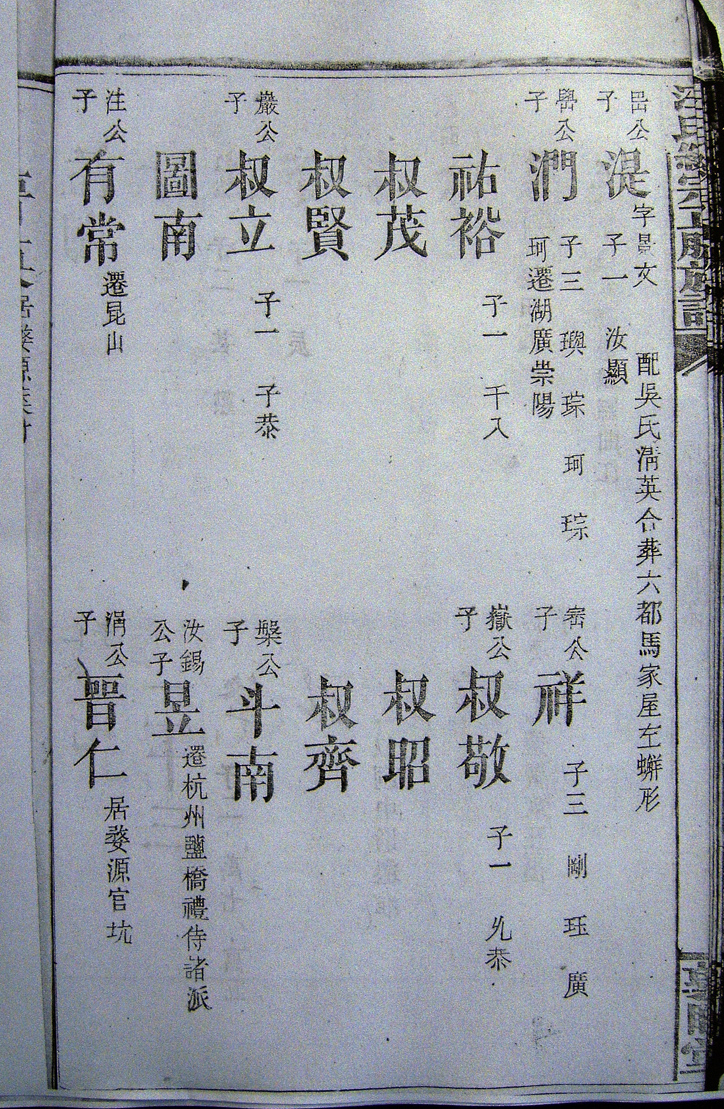 公子
湜
字景文
子一 汝顯
配吳氏清英合葬六都馬家屋左螃形
澩公子
潤
子三 璵琮珂
珂遷湖廣崇陽
琮
公子
祥
子三 剛 珏 廣
祐裕
子一 千入
嶽公子
叔敬
子一 允恭
叔茂
叔昭
叔賢
叔齊
巖公子
叔立
子一 子恭
槃公子
斗南
圖南
汝錫公子
昱
遷杭州鹽橋禮侍諸派
注公子
有常
遷昆山
涓公子
晋仁
居婺源官坑